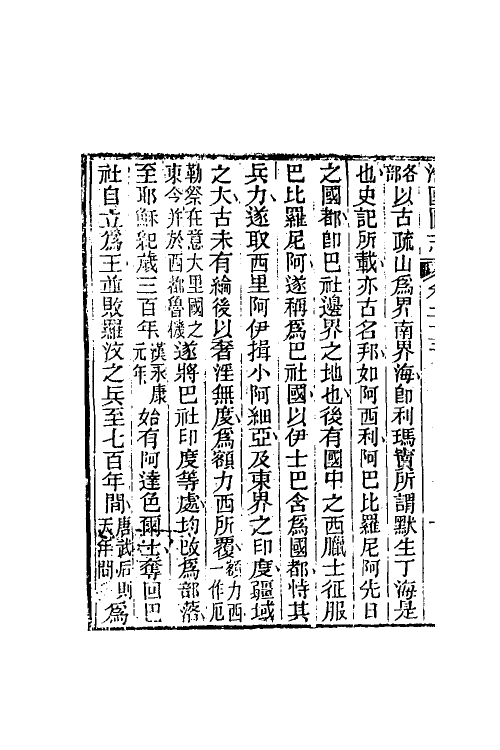 各部以古疏山爲界南界海卽利瑪竇所謂默生丁海是
也史記所載亦古名邦如阿西利阿巴比羅尼阿先日
之國都卽巴社邊界之地也後有國中之西臘士征服
巴比羅尼阿遂稱爲巴社國以伊士巴含爲國都恃其
兵力遂取西里阿伊揖小阿細亞及東界之印度疆域
之大古未有綸後以奢淫無度爲額力西所覆額力西一作厄
勒祭在意大里國之東今并於西都魯機遂將巴社印度等處均改爲部落
至耶穌紀歲三百年漢永康元年始有阿達色爾士奪回巴
社自立爲王並敗羅汶之兵至七百年間唐武后則天年間爲